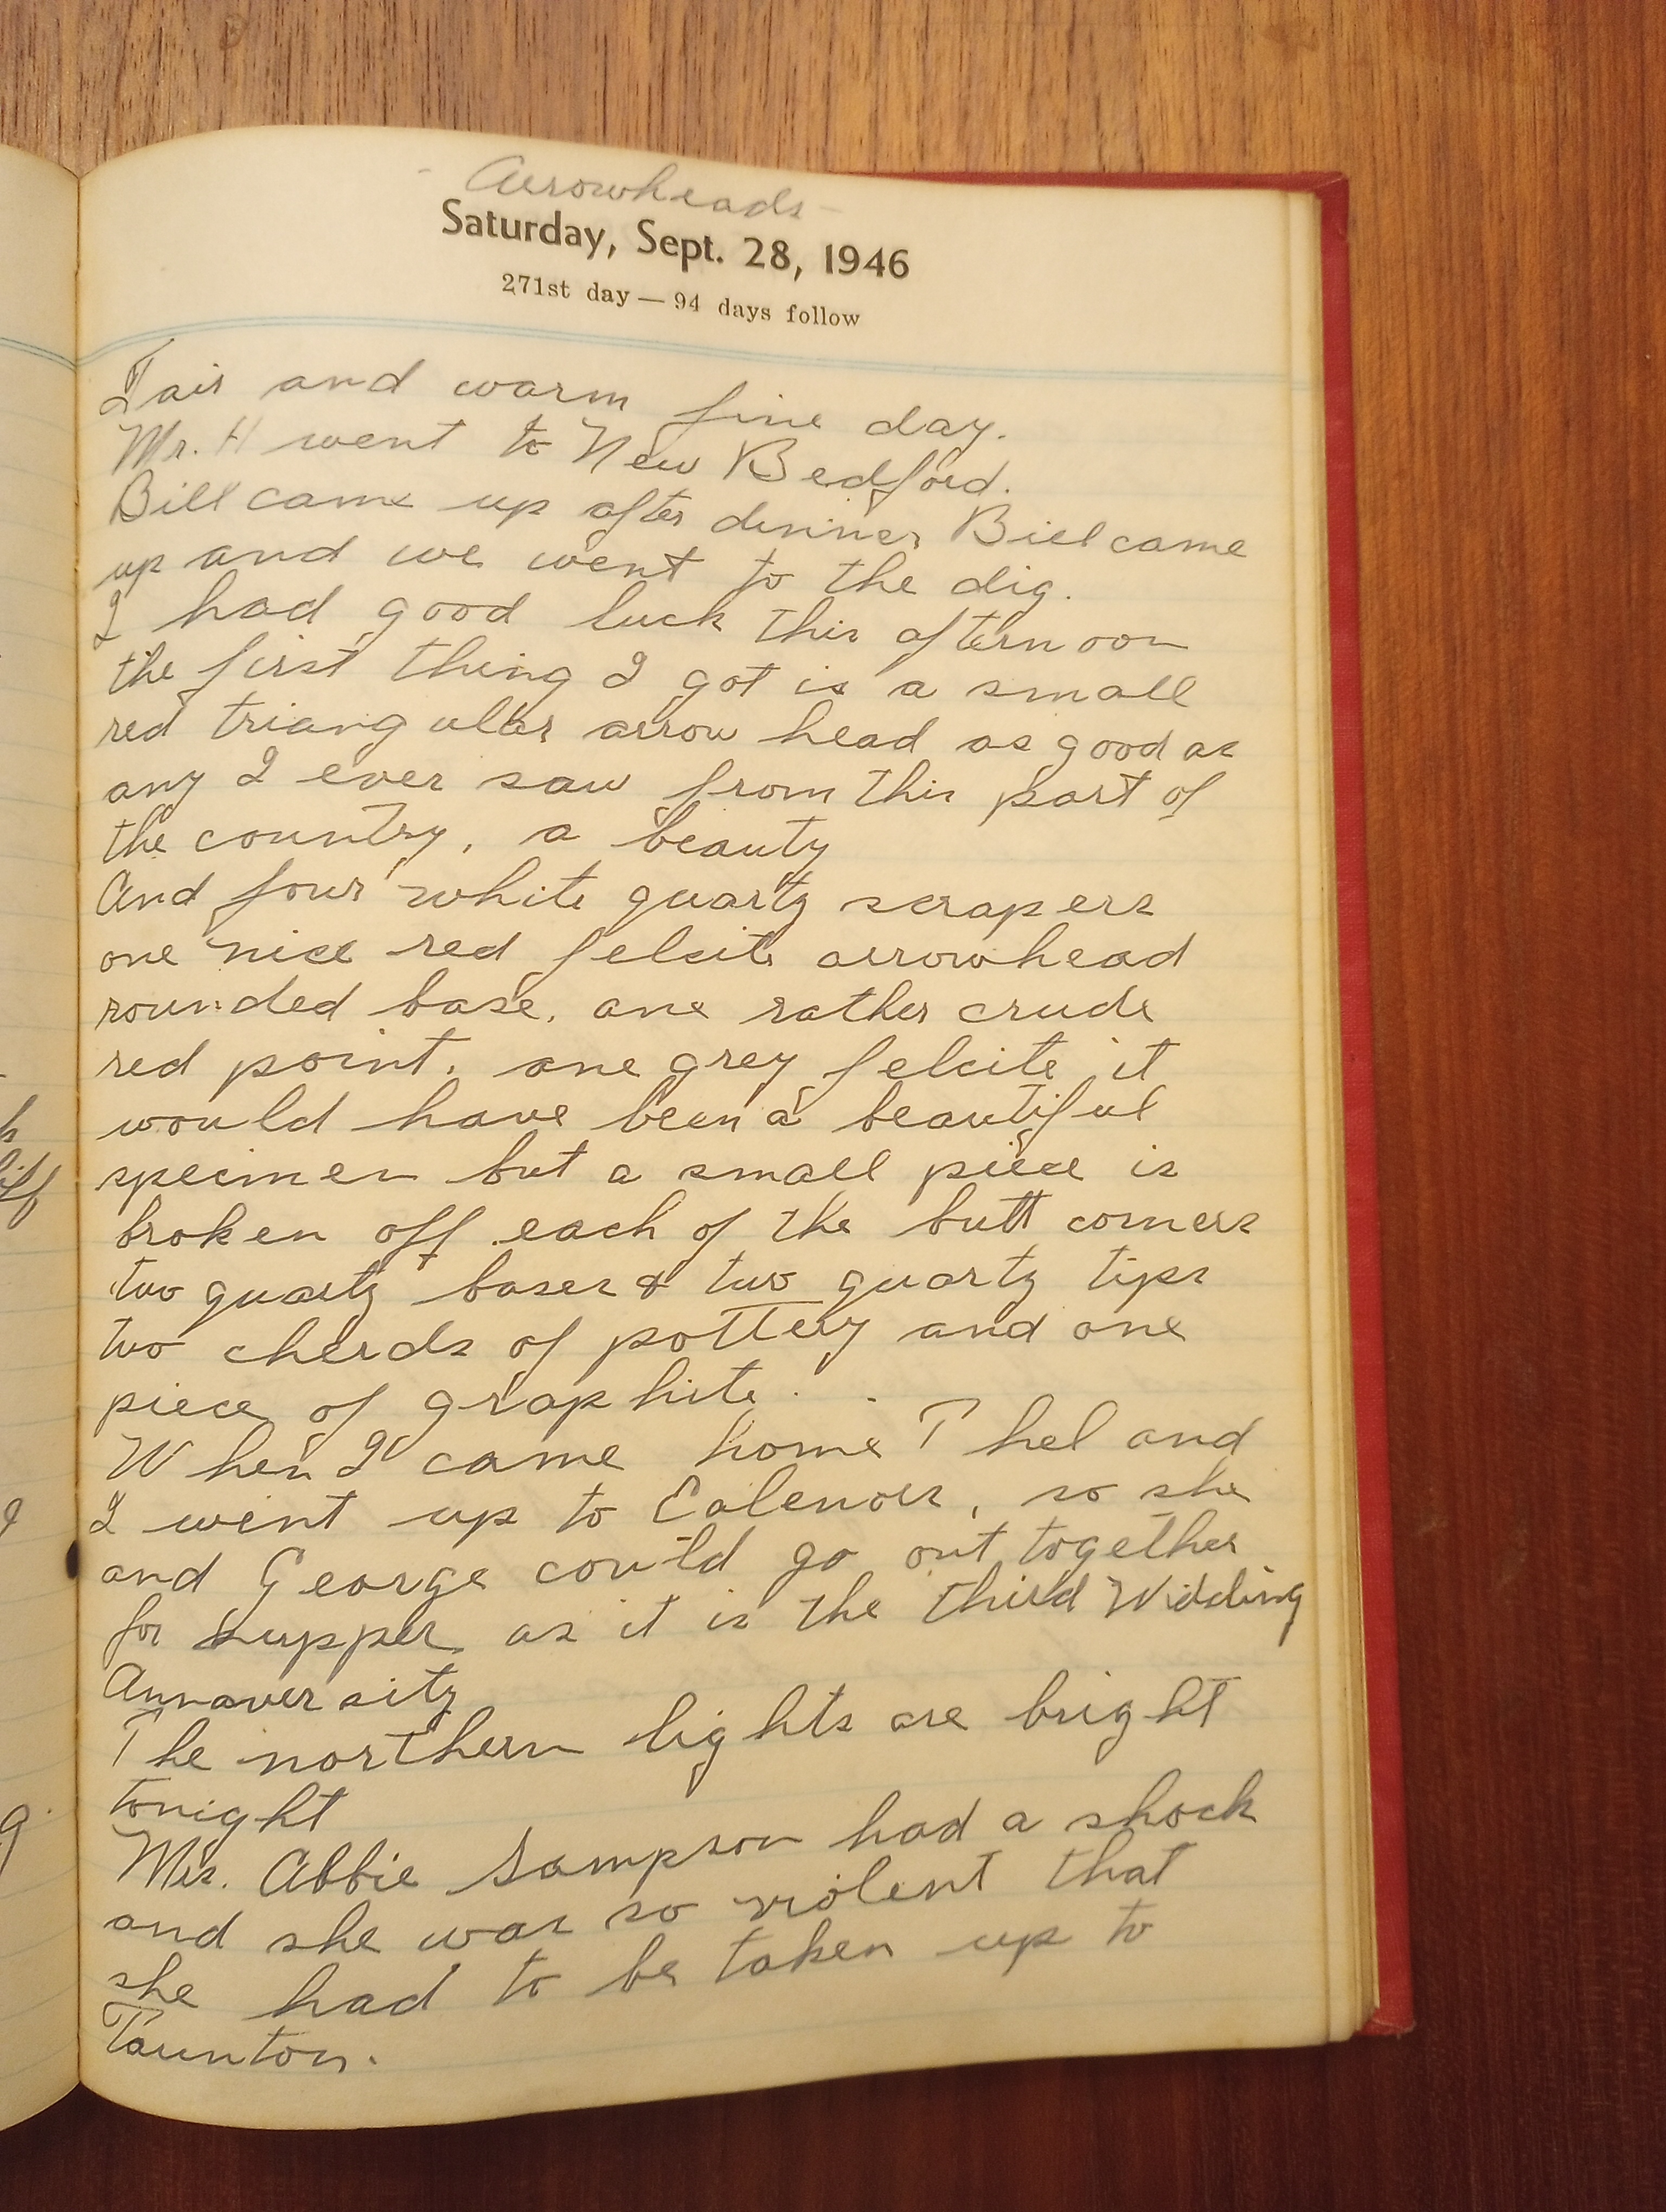 - Arrowheads -
Saturday, Sept. 28, 1946
271st day — 94 days follow
Fair and warm fine day.
Mr. H went to New Bedford.
Bill came up after dinner Bill came
up and we went to the dig.
I had good luck this afternoon
the first thing I got is a small
red triangular arrow head as good as
any I ever saw from this part of
the country, a beauty
And four white quartz scrapers
one nice red felcite arrowhead
rounded base. one rather crude
red point. one grey felcite it
would have been a beautiful
specimen but a small piece is
broken off each of the butt corners
two quartz bases & two quartz tips
two cherds of pottery and one
piece of graphite.
When I came home Thel and
I went up to Ealenors, so she
and George could go out together
for supper as it is the third Widding
Annaversity
The northern lights are bright
tonight
Mrs. Abbie Sampson had a shock
and she was so violent that
she had to be taken up to
Taunton.